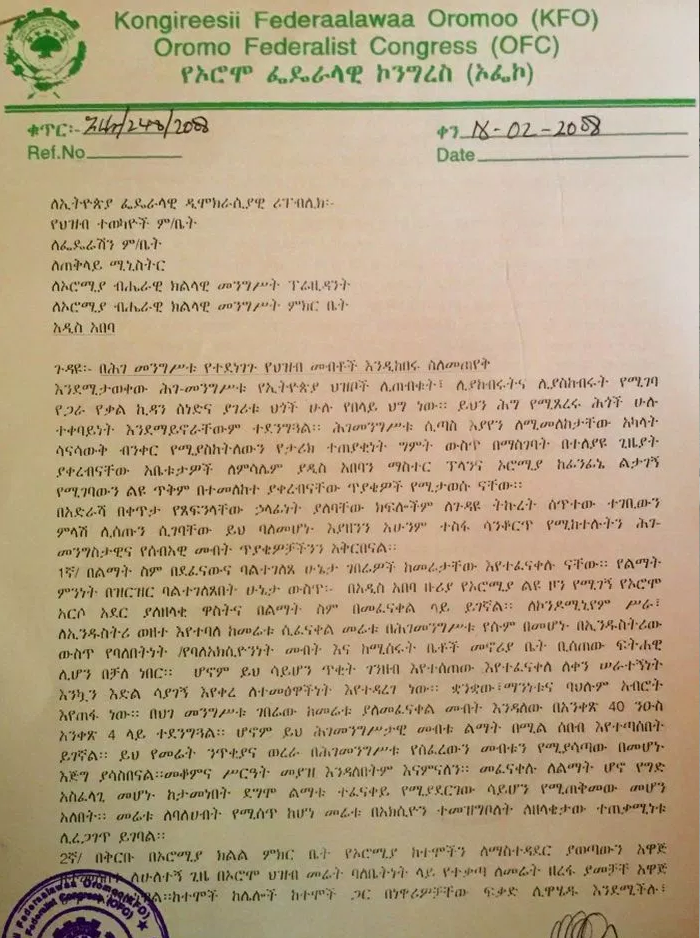 Kongireesii Federaalawaa Oromoo (KFO)
Oromo Federalist Congress (OFC)
የኦሮሞ ፌዴራላዊ ኮንግረስ (ኦፌኮ)
ቁጥር፡-
ቀን 18-02-2008
Ref.No
Date
ለኢትዮጵያ ፌዴራላዊ ዲሞክራሲያዊ ሪፐብሊክ፡-
የህዝብ ተወካዮች ም/ቤት
ለፌዴሬሽን ም/ቤት
ለጠቅላይ ሚኒስትር
ለኦሮሚያ ብሔራዊ ክልላዊ መንግሥት ፕሬዚዳንት
ለኦሮሚያ ብሔራዊ ክልላዊ መንግሥት ምክር ቤት
አዲስ አበባ
ጉዳዩ፡- በሕገ መንግሥቱ የተደነገጉ የህዝብ መብቶች እንዲከበሩ ስለመጠየቅ
እንደሚታወቀው ሕገ-መንግሥቱ የኢትዮጵያ ህዝቦች ሊጠብቁት፣ ሊያከብሩትና ሊያስከብሩት የሚገባ
የጋራ የቃል ኪዳን ሰነድና ያገሪቱ ህጎች ሁሉ የበላይ ህግ ነው፡፡ ይህን ሕግ የሚጻረሩ ሕጎች ሁሉ
ተቀባይነት እንደማይኖራቸውም ተደንግጓል፡፡ ሕገመንግሥቱ ሲጣስ እያየን ለሚመለከታቸው አካላት
ሳናሳውቅ ብንቀር የሚያስከትለውን የታሪክ ተጠያቂነት ግምት ውስጥ በማስገባት በተለያዩ ጊዜያት
ያቀረብናቸው አቤቱታዎች ለምሳሌም ያዲስ አበባን ማስተር ፕላንና ኦሮሚያ ከፊንፊኔ ልታገኝ
የሚገባውን ልዩ ጥቅም በተመለከተ ያቀረብናቸው ጥያቄዎች የሚታወሱ ናቸው፡፡
በአድራሻ በቀጥታ የጻፍንላቸው ኃላፊነት ያለባቸው ክፍሎችም ለጉዳዩ ትኩረት ሰጥተው ተገቢውን
ምላሽ ሊሰጡን ሲገባቸው ይህ ባለመሆኑ እያዘንን አሁንም ተስፋ ሳንቆርጥ የሚከተሉትን ሕገ-
መንግስታዊና የሰብአዊ መብት ጥያቄዎቻችንን አቅርበናል፡፡
1ኛ/ በልማት ስም በደፈናውና ባልተገለጸ ሁኔታ ገበሬዎች ከመሬታቸው እየተፈናቀሉ ናቸው፡፡ የልማት
ምንነት በዝርዝር ባልተገለጸበት ሁኔታ ውስጥ፡- በአዲስ አበባ ዙሪያ የኦሮሚያ ልዩ ዞን የሚገኝ የኦሮሞ
አርሶ አደር ያለዘላቂ ዋስትና በልማት ስም በመፈናቀል ላይ ይገኛል፡፡ ለኮንዶሚኒየም ሥራ፣
ለኢንዱስትሪ ወዘተ እየተባለ ከመሬቱ ሲፈናቀል መሬቱ በሕገመንግሥቱ የሱም በመሆኑ በኢንዱስትሪው
ውስጥ የባለበትነት /የባለአክሲዮንነት መብት እና ከሚሰሩት ቤቶች መኖሪያ ቤት ቢሰጠው ፍትሐዊ
ሊሆን በቻለ ነበር፡፡ ሆኖም ይህ ሳይሆን ጥቂት ገንዘብ እየተሰጠው እየተፈናቀለ ለቀን ሠራተኝነት
እንኳን እድል ሳያገኝ እየቀረ ለተመፅዋችነት እየተዳረገ ነው፡፡ ቋንቋው፣ማንነቱና ባህሉም አብሮት
እየጠፋ ነው፡፡ በህገ መንግሥቱ ገበሬው ከመሬቱ ያለመፈናቀል መብት እንዳለው በአንቀጽ 40 ንዑስ
አንቀጽ 4 ላይ ተደንግጓል፡፡ ሆኖም ይህ ሕገመንግሥታዊ መብቱ ልማት በሚል ሰበብ እየተጣሰበት
ይገኛል፡፡ ይህ የመሬት ንጥቂያና ወረራ በሕገመንግሥቱ የሰፈረውን መብቱን የሚያሳጣው በመሆኑ
እጅግ ያሳስበናል፡፡መቆምና ሥርዓት መያዝ እንዳለበትም እናምናለን፡፡ መፈናቀሉ ለልማት ሆኖ የግድ
አስፈላጊ መሆኑ ከታመነበት ደግሞ ልማቱ ተፈናቃይ የሚያደርገው ሳይሆን የሚጠቅመው መሆን
አለበት፡፡ መሬቱ ለባለሀብት የሚሰጥ ከሆነ መሬቱ በአክሲዮን ተመዝግቦለት ለዘላቂታው ተጠቃሚነቱ
ሊረጋገጥ ይገባል፡፡
2ኛ/ በቅርቡ በኦሮሚያ ክልል ምክር ቤት የኦሮሚያ ከተሞችን ለማስተዳደር ያወጣውን አዋጅ
ለሁለተኛ ጊዜ በኦሮሞ ህዝብ መሬት ባለቤትነት ላይ የተቃጣ ለመሬት ዘረፋ ያመቻቸ አዋጅ
ከተሞች ከሌሎች ከተሞች ጋር በነዋሪዎቻቸው ፍቃድ ሊዋሃዱ እንደሚችሉ፣